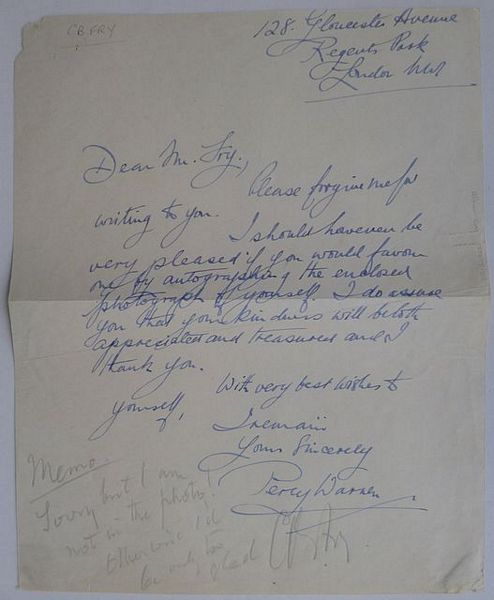 C.B. FRY
128. Gloucester Avenue
Regents Park
London NW1
Dear Mr. Fry,
Please forgive me for
writing to you.
I should however be
very pleased if you would favour
me by autographing the enclosed
photograph of yourself. I do assure
you that your kindness will be both
appreciated and treasured and I
thank you.
With very best wishes to
yourself,
I remain
Yours Sincerely
Percy Warren
Memo.
Sorry but I am
not in the photo!
Otherwise I'd
be only too
glad
CB Fry.